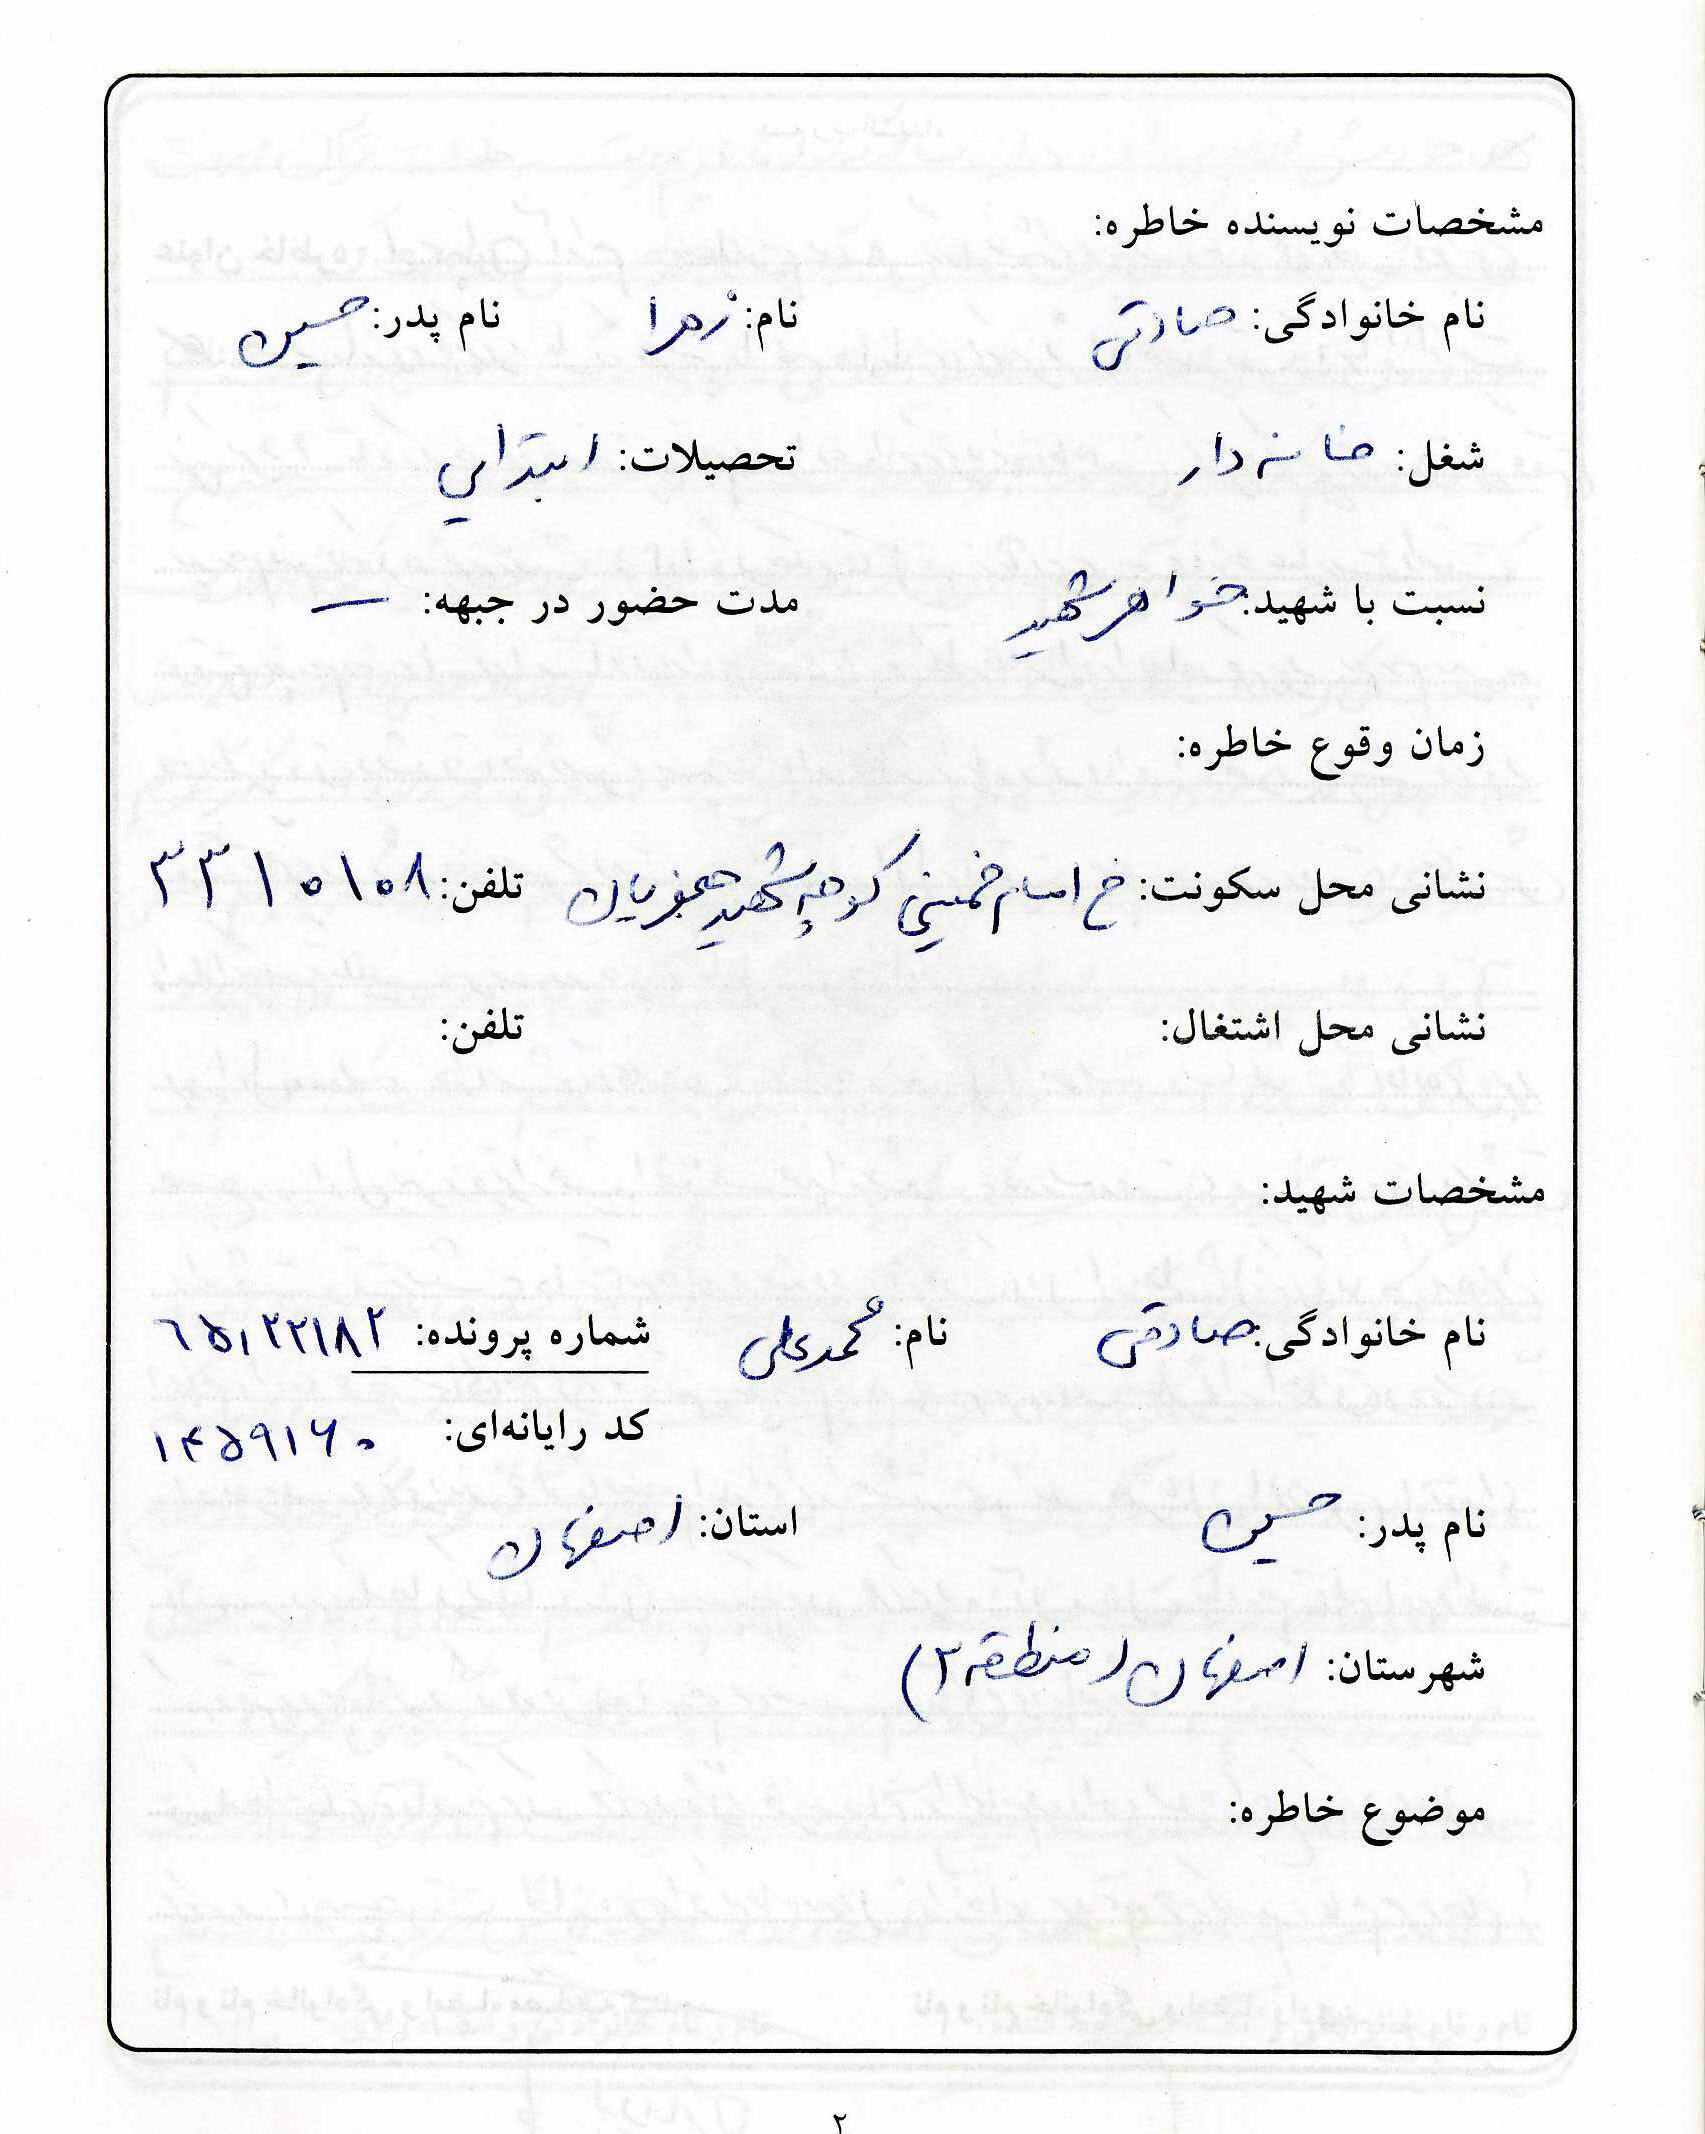 مشخصات نویسنده خاطره:
نام خانوادگی: صادقی نام: زهرا نام پدر: حسین
شغل: خانه دار تحصیلات: ابتدایی
نسبت با شهید: خواهر شهید مدت حضور در جبهه: —
زمان وقوع خاطره:
نشانی محل سکونت: خ امام خمینی کوچه شهید جعفریان تلفن: ۳۳۱۰۱۰۸
نشانی محل اشتغال: تلفن:
مشخصات شهید:
نام خانوادگی: صادقی نام: محمدعلی شماره پرونده: ۶۵۱۲۲۱۸۲
کد رایانه‌ای: ۱۴۵۹۱۶۰
نام پدر: حسین استان: اصفهان
شهرستان: اصفهان (منطقه ۲)
موضوع خاطره:
۲